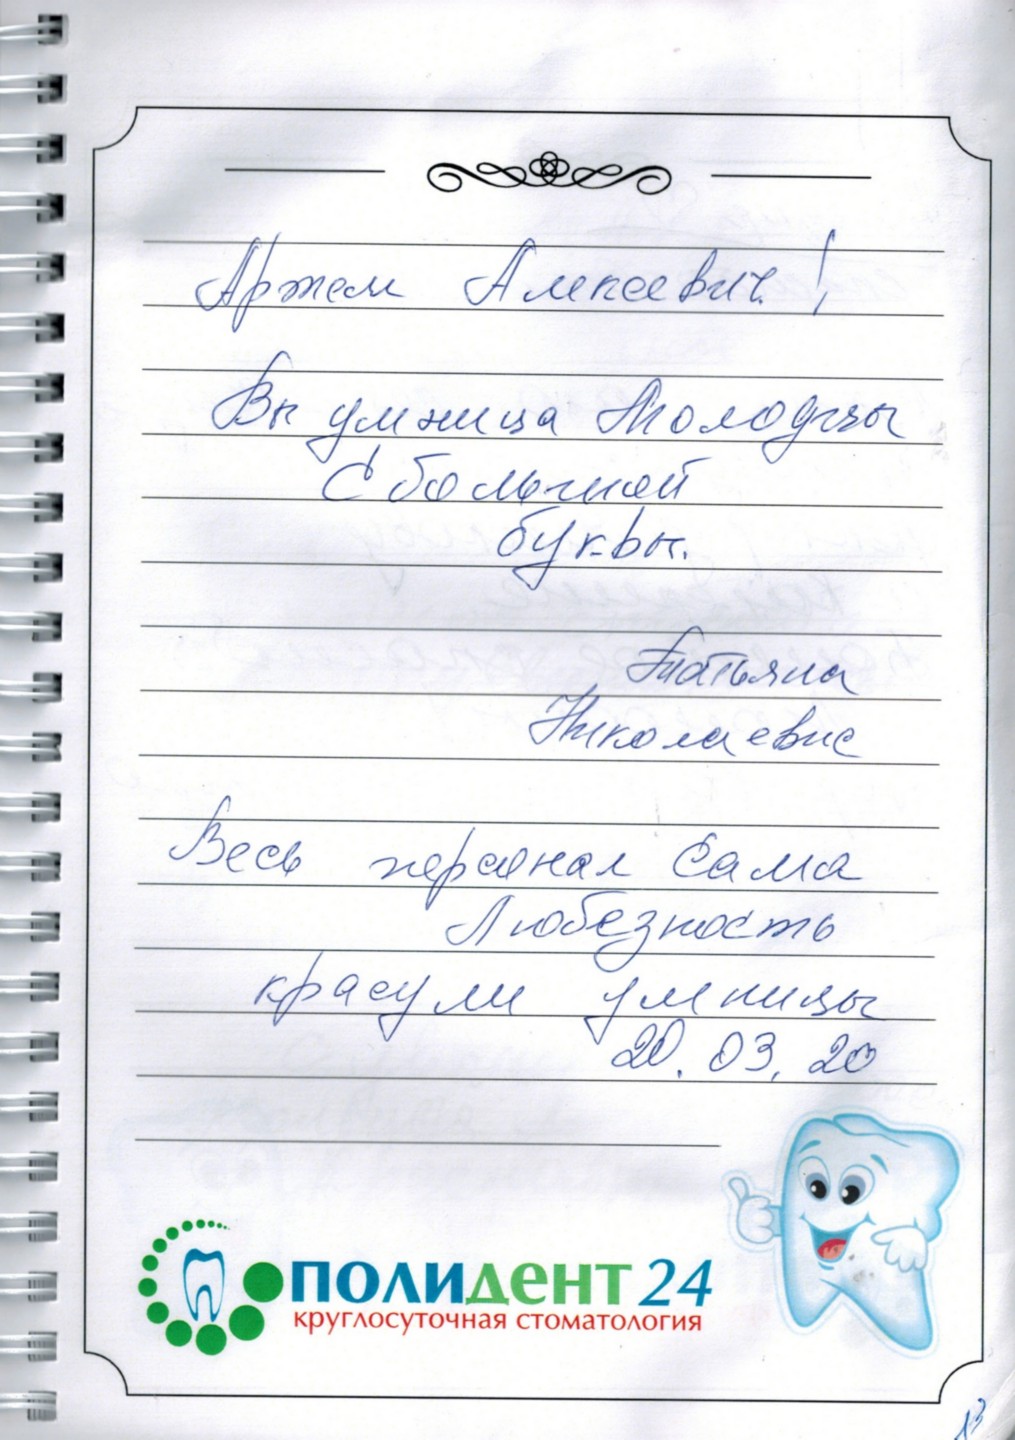 Артем Алексеевич!
Вы умница Молодцы
С большой
буквы.
Татьяна
Николаевне
Весь персонал Сама
Любезность
красули умницы
20.03.20
ПОЛИДЕНТ 24
круглосуточная стоматология
13